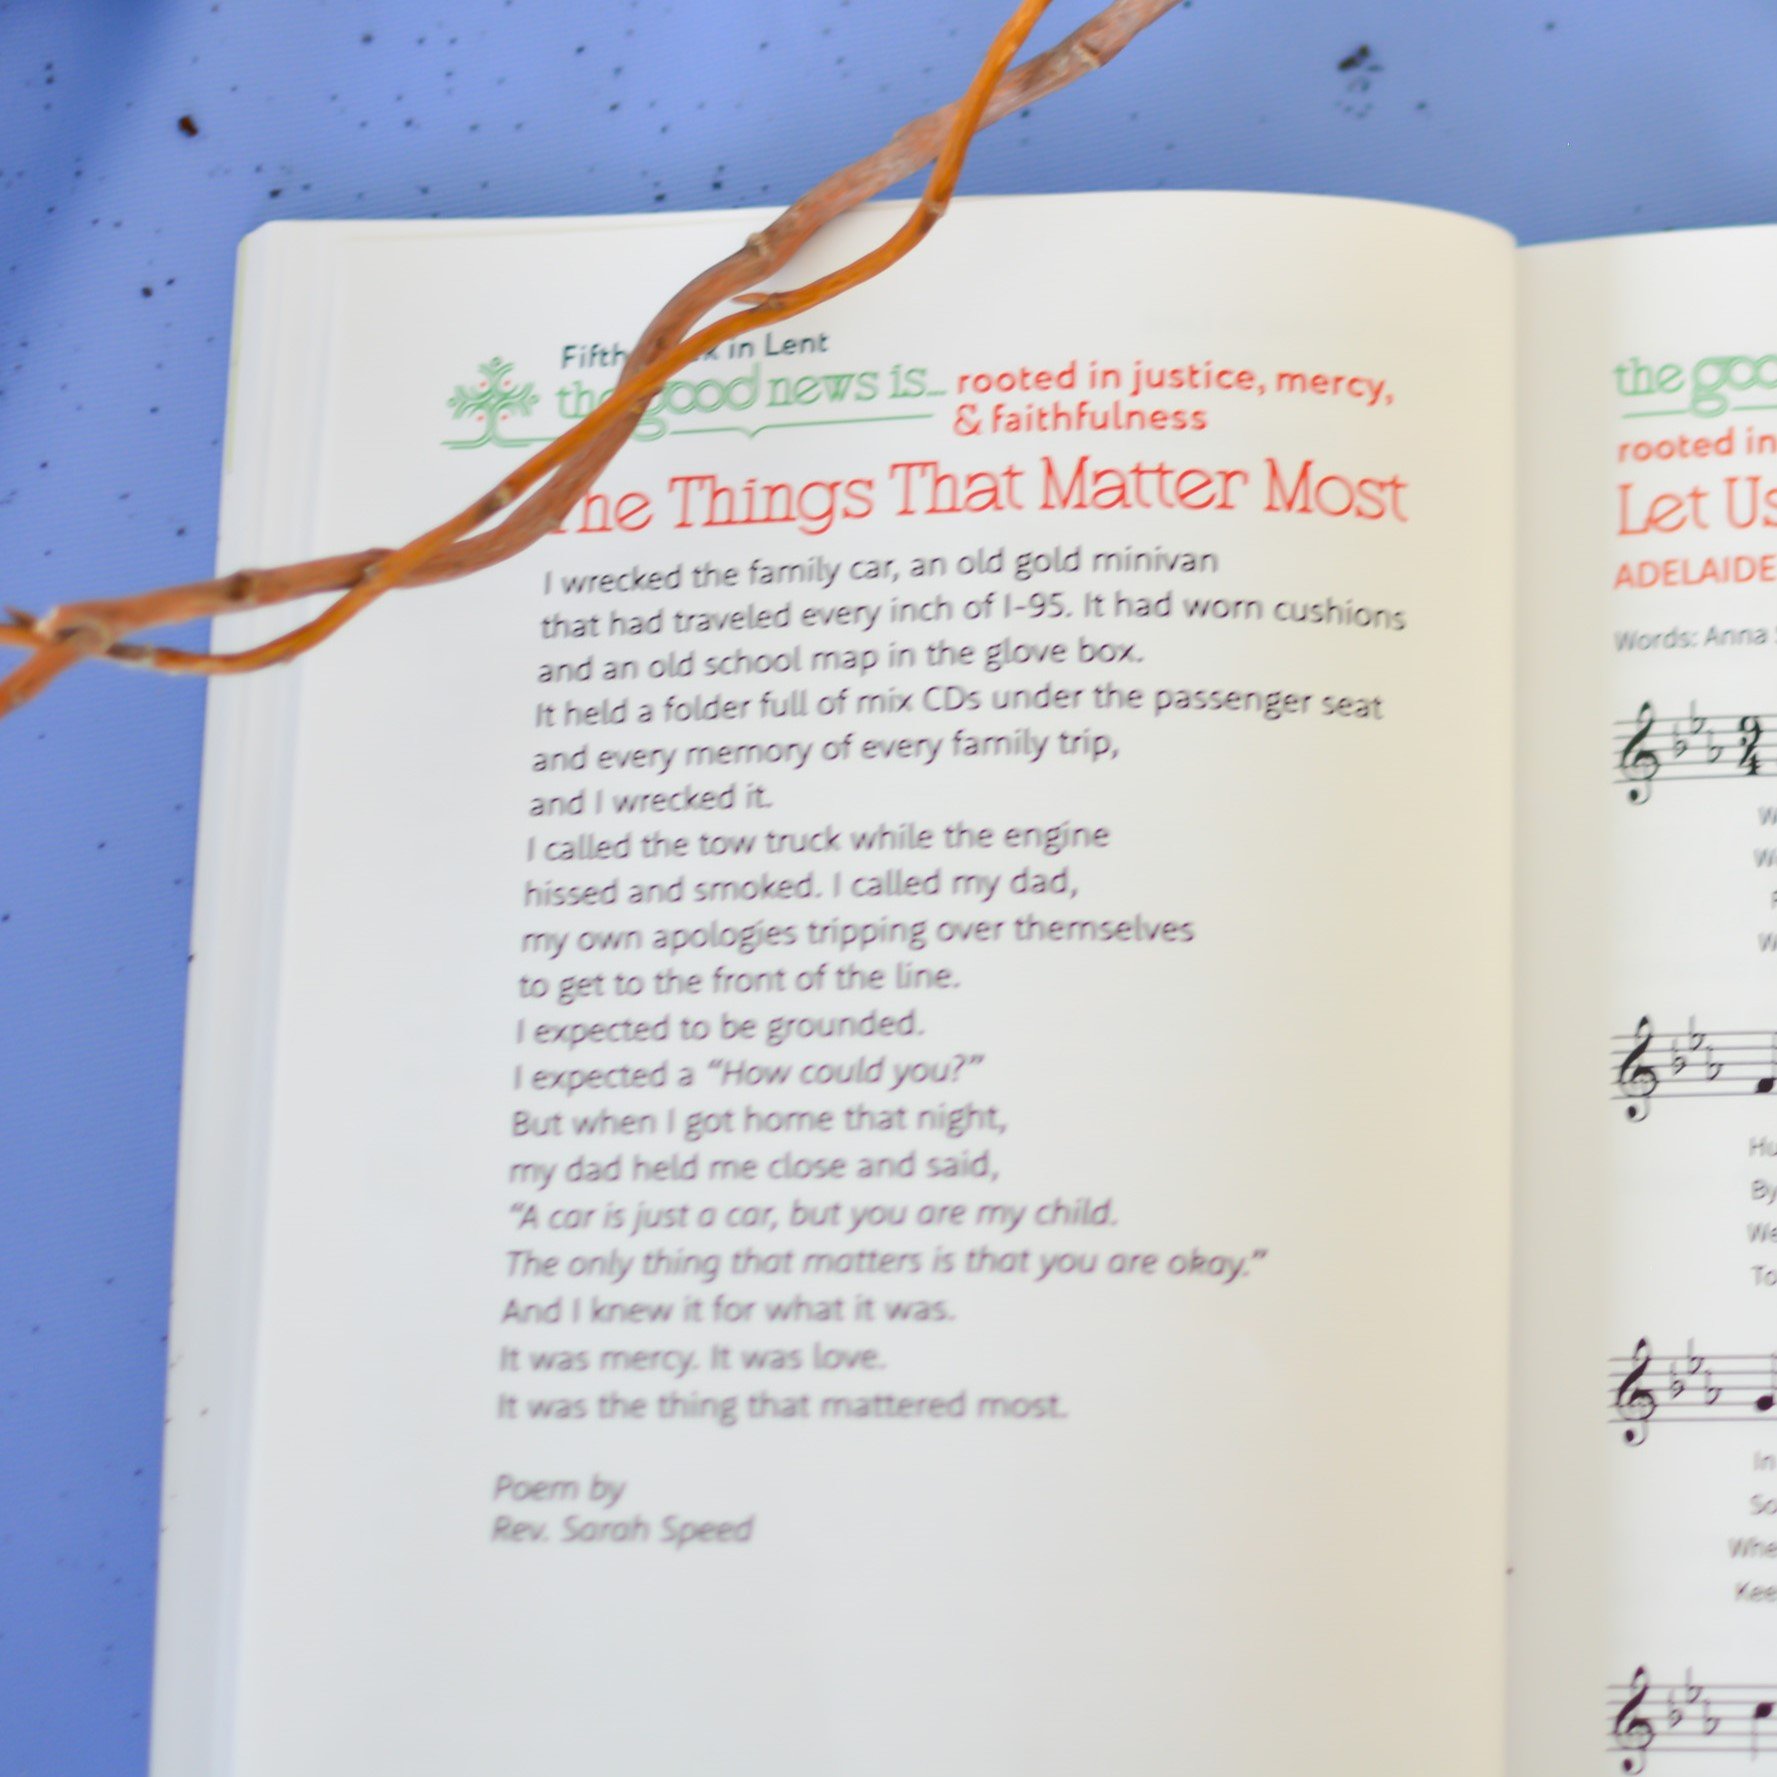 Fifth in Lent
the good news is... rooted in justice, mercy,
& faithfulness
The Things That Matter Most
I wrecked the family car, an old gold minivan
that had traveled every inch of I-95. It had worn cushions
and an old school map in the glove box.
It held a folder full of mix CDs under the passenger seat
and every memory of every family trip,
and I wrecked it.
I called the tow truck while the engine
hissed and smoked. I called my dad,
my own apologies tripping over themselves
to get to the front of the line.
I expected to be grounded.
I expected a “How could you?”
But when I got home that night,
my dad held me close and said,
“A car is just a car, but you are my child.
The only thing that matters is that you are okay.”
And I knew it for what it was.
It was mercy. It was love.
It was the thing that mattered most.
Poem by
Rev. Sarah Speed
the goo
rooted in
Let Us
ADELAIDE
Words: Anna
9
4
By
We
To
In
So
Whe
Kee